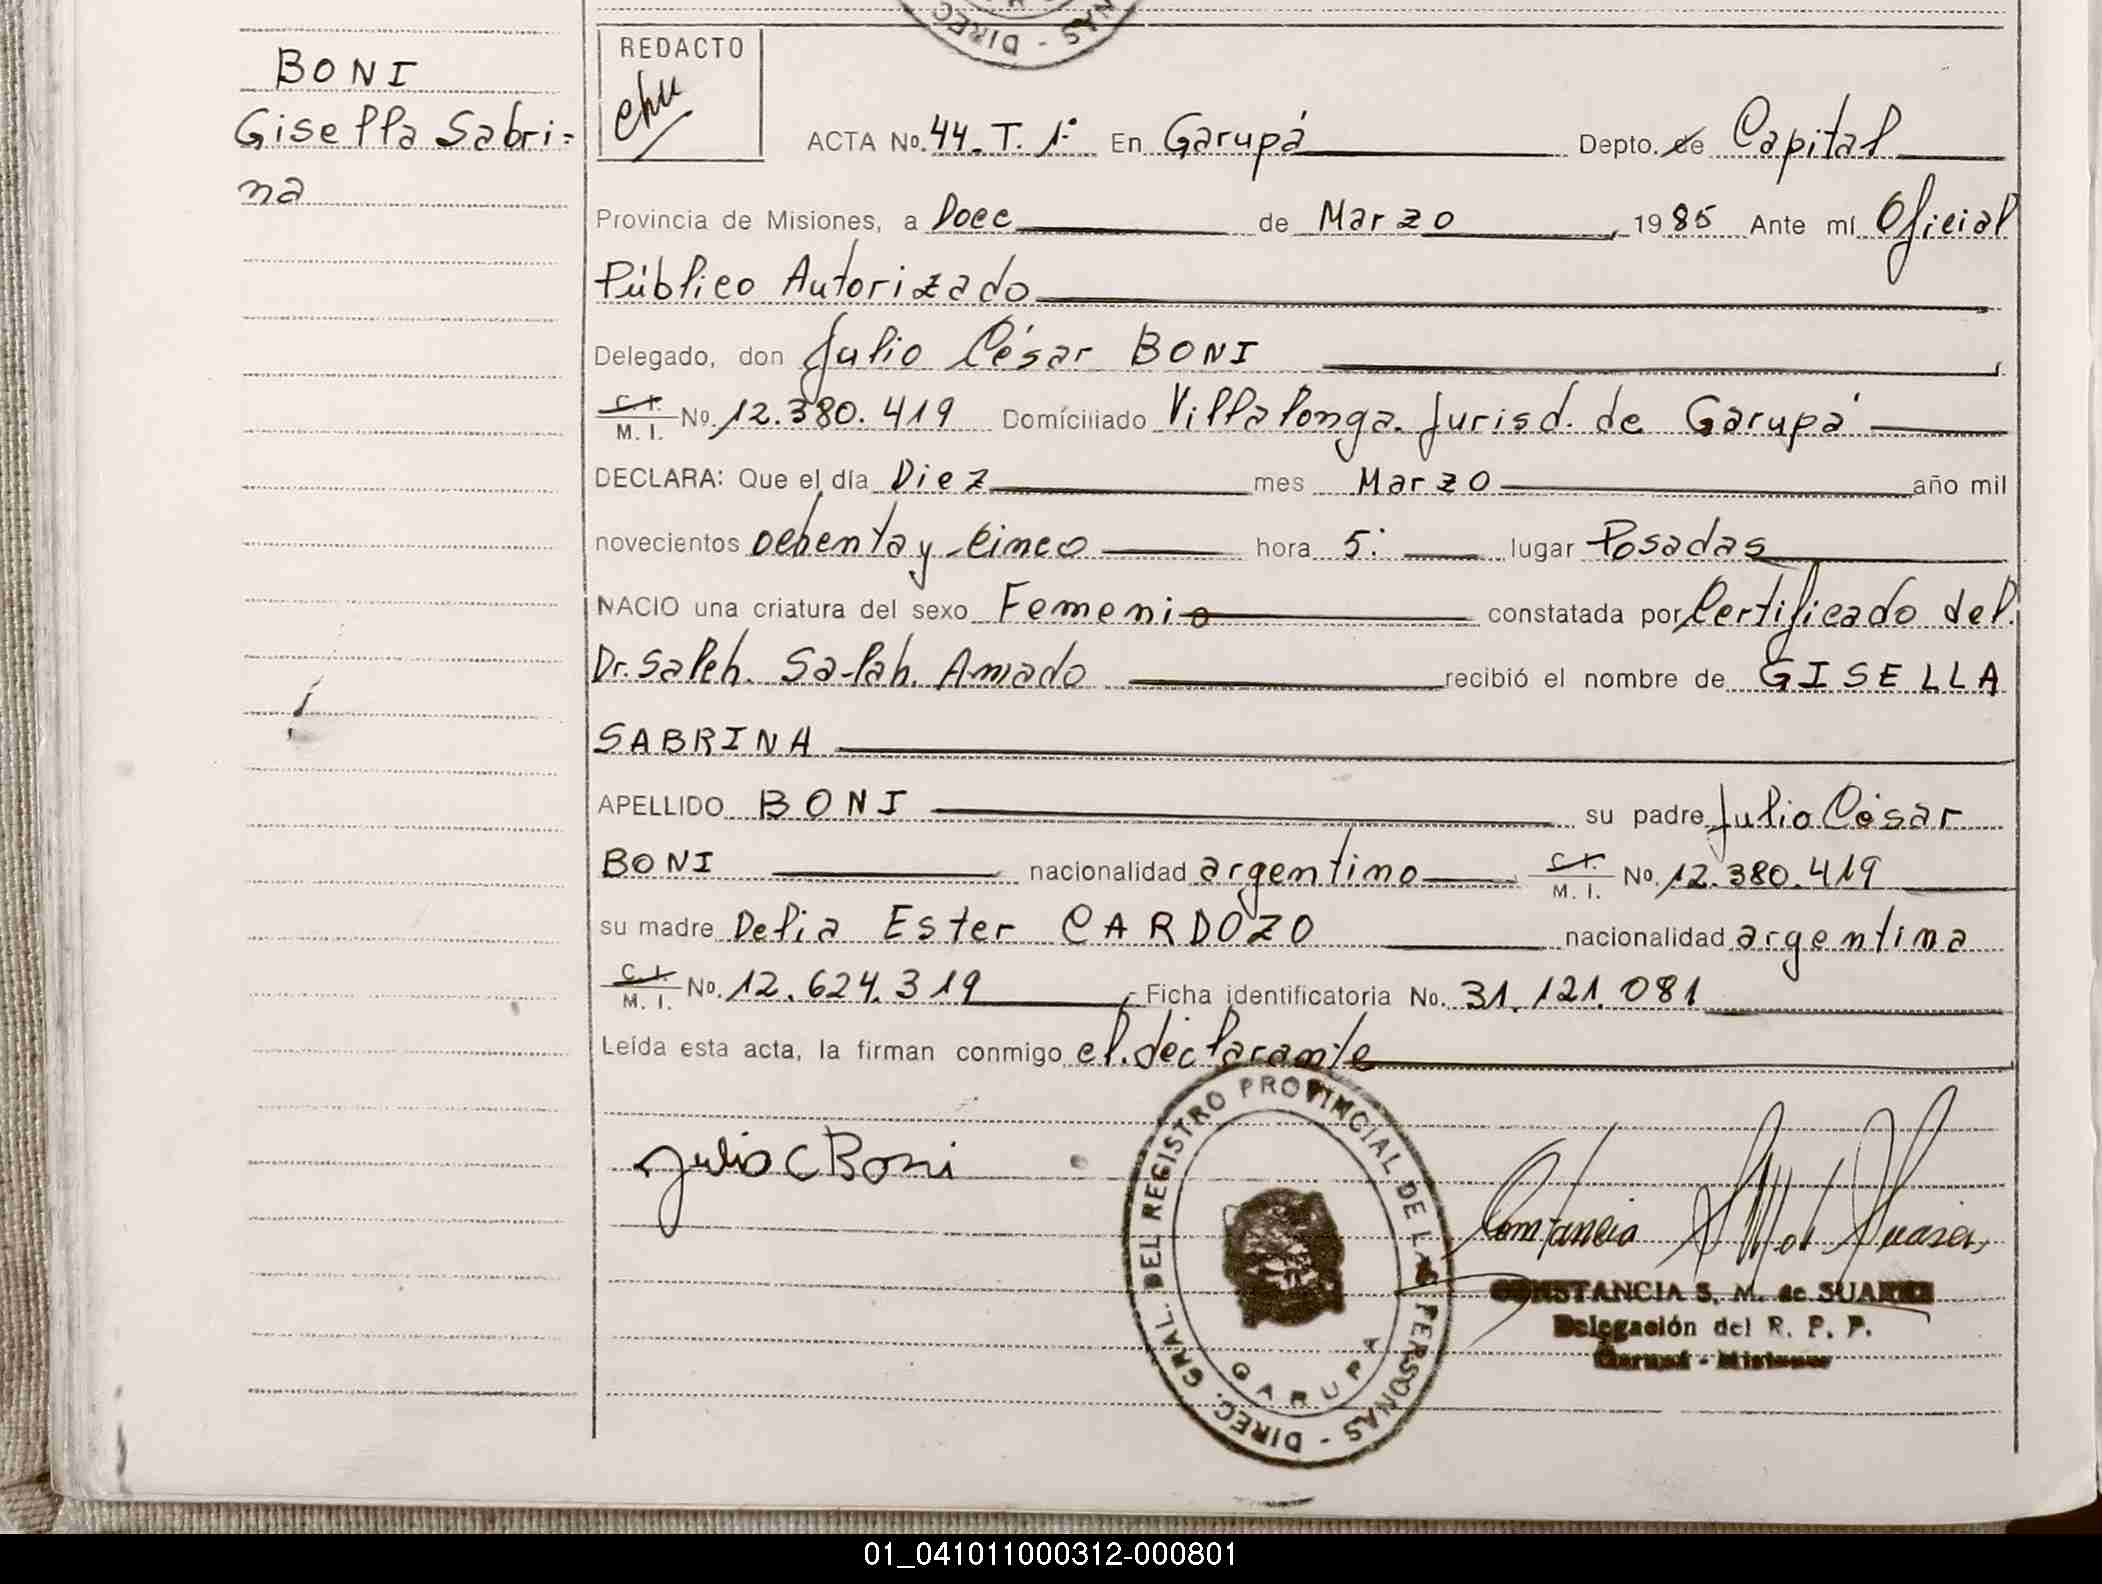 BONI
Gisella Sabri=
na
REDACTO
ACTA No. 44. T. 1º En Garupá Depto. de Capital
Provincia de Misiones, a Doce de Marzo, 1985 Ante mí Oficial
Público Autorizado
Delegado, don Julio César BONI
C. I. M. I. No. 12.380.419 Domiciliado Villalonga. Jurisd. de Garupá
DECLARA: Que el día Diez mes Marzo año mil
novecientos ochenta y cinco hora 5: lugar Posadas
NACIO una criatura del sexo Femenio constatada por Certificado del.
Dr. Saleh. Salah. Amado recibió el nombre de GISELLA
SABRINA
APELLIDO BONI su padre Julio César
BONI nacionalidad argentino C. I. M. I. No. 12.380.419
su madre Delia Ester CARDOZO nacionalidad argentina
C. I. M. I. No. 12.624.319 Ficha identificatoria No. 31.121.081
Leída esta acta, la firman conmigo el declarante
Julio C Boni
DIREC. GRAL. DEL REGISTRO PROVINCIAL DE LAS PERSONAS - GARUPA
CONSTANCIA S. M. de SUAREZ
Delegación del R. P. P.
Garupá - Misiones
01_041011000312-000801